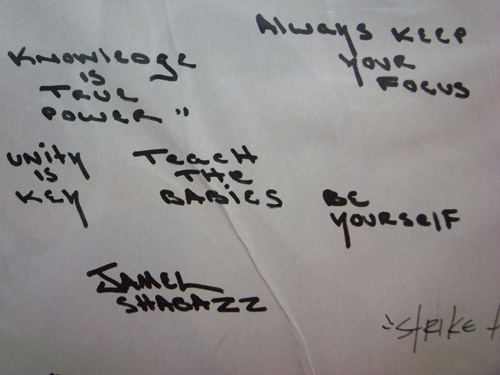 Always Keep
Your
Focus
Knowledge
is
True
Power"
Unity
is
Key
Teach
the
Babies
Be
Yourself
Jamel
Shabazz
"Strike